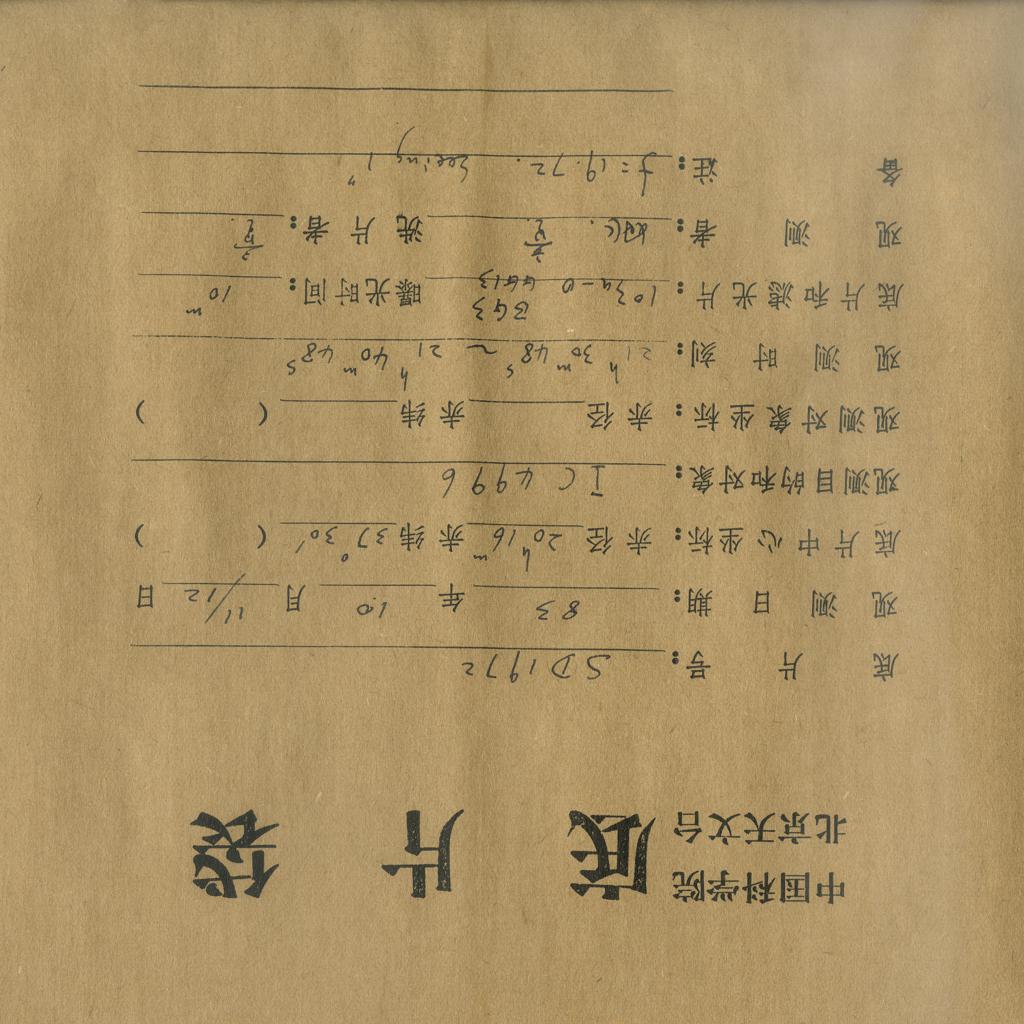 中国科学院
北京天文台 底片袋
底片号: SD1972
观测日期: 83年10月11/12日
底片中心坐标: 赤径20h16m赤纬37°30′( )
观测目的和对象: IC 4996
观测对象坐标: 赤径 赤纬 ( )
观测时刻: 21h30m48s ~ 21h40m48s
底片和滤光片: 103a-O BG3 GG13 曝光时间: 10m
观测者: 洗片者:
备注: f=19.72. Seeing 1"